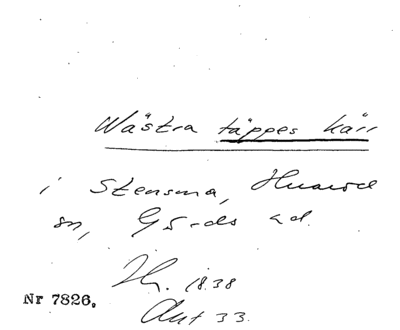 Wästra täppes kärr
i Stensma, Hnarod
sn, Gärds hd.
Ht. 1838
Akt 33.
Nr 7826.